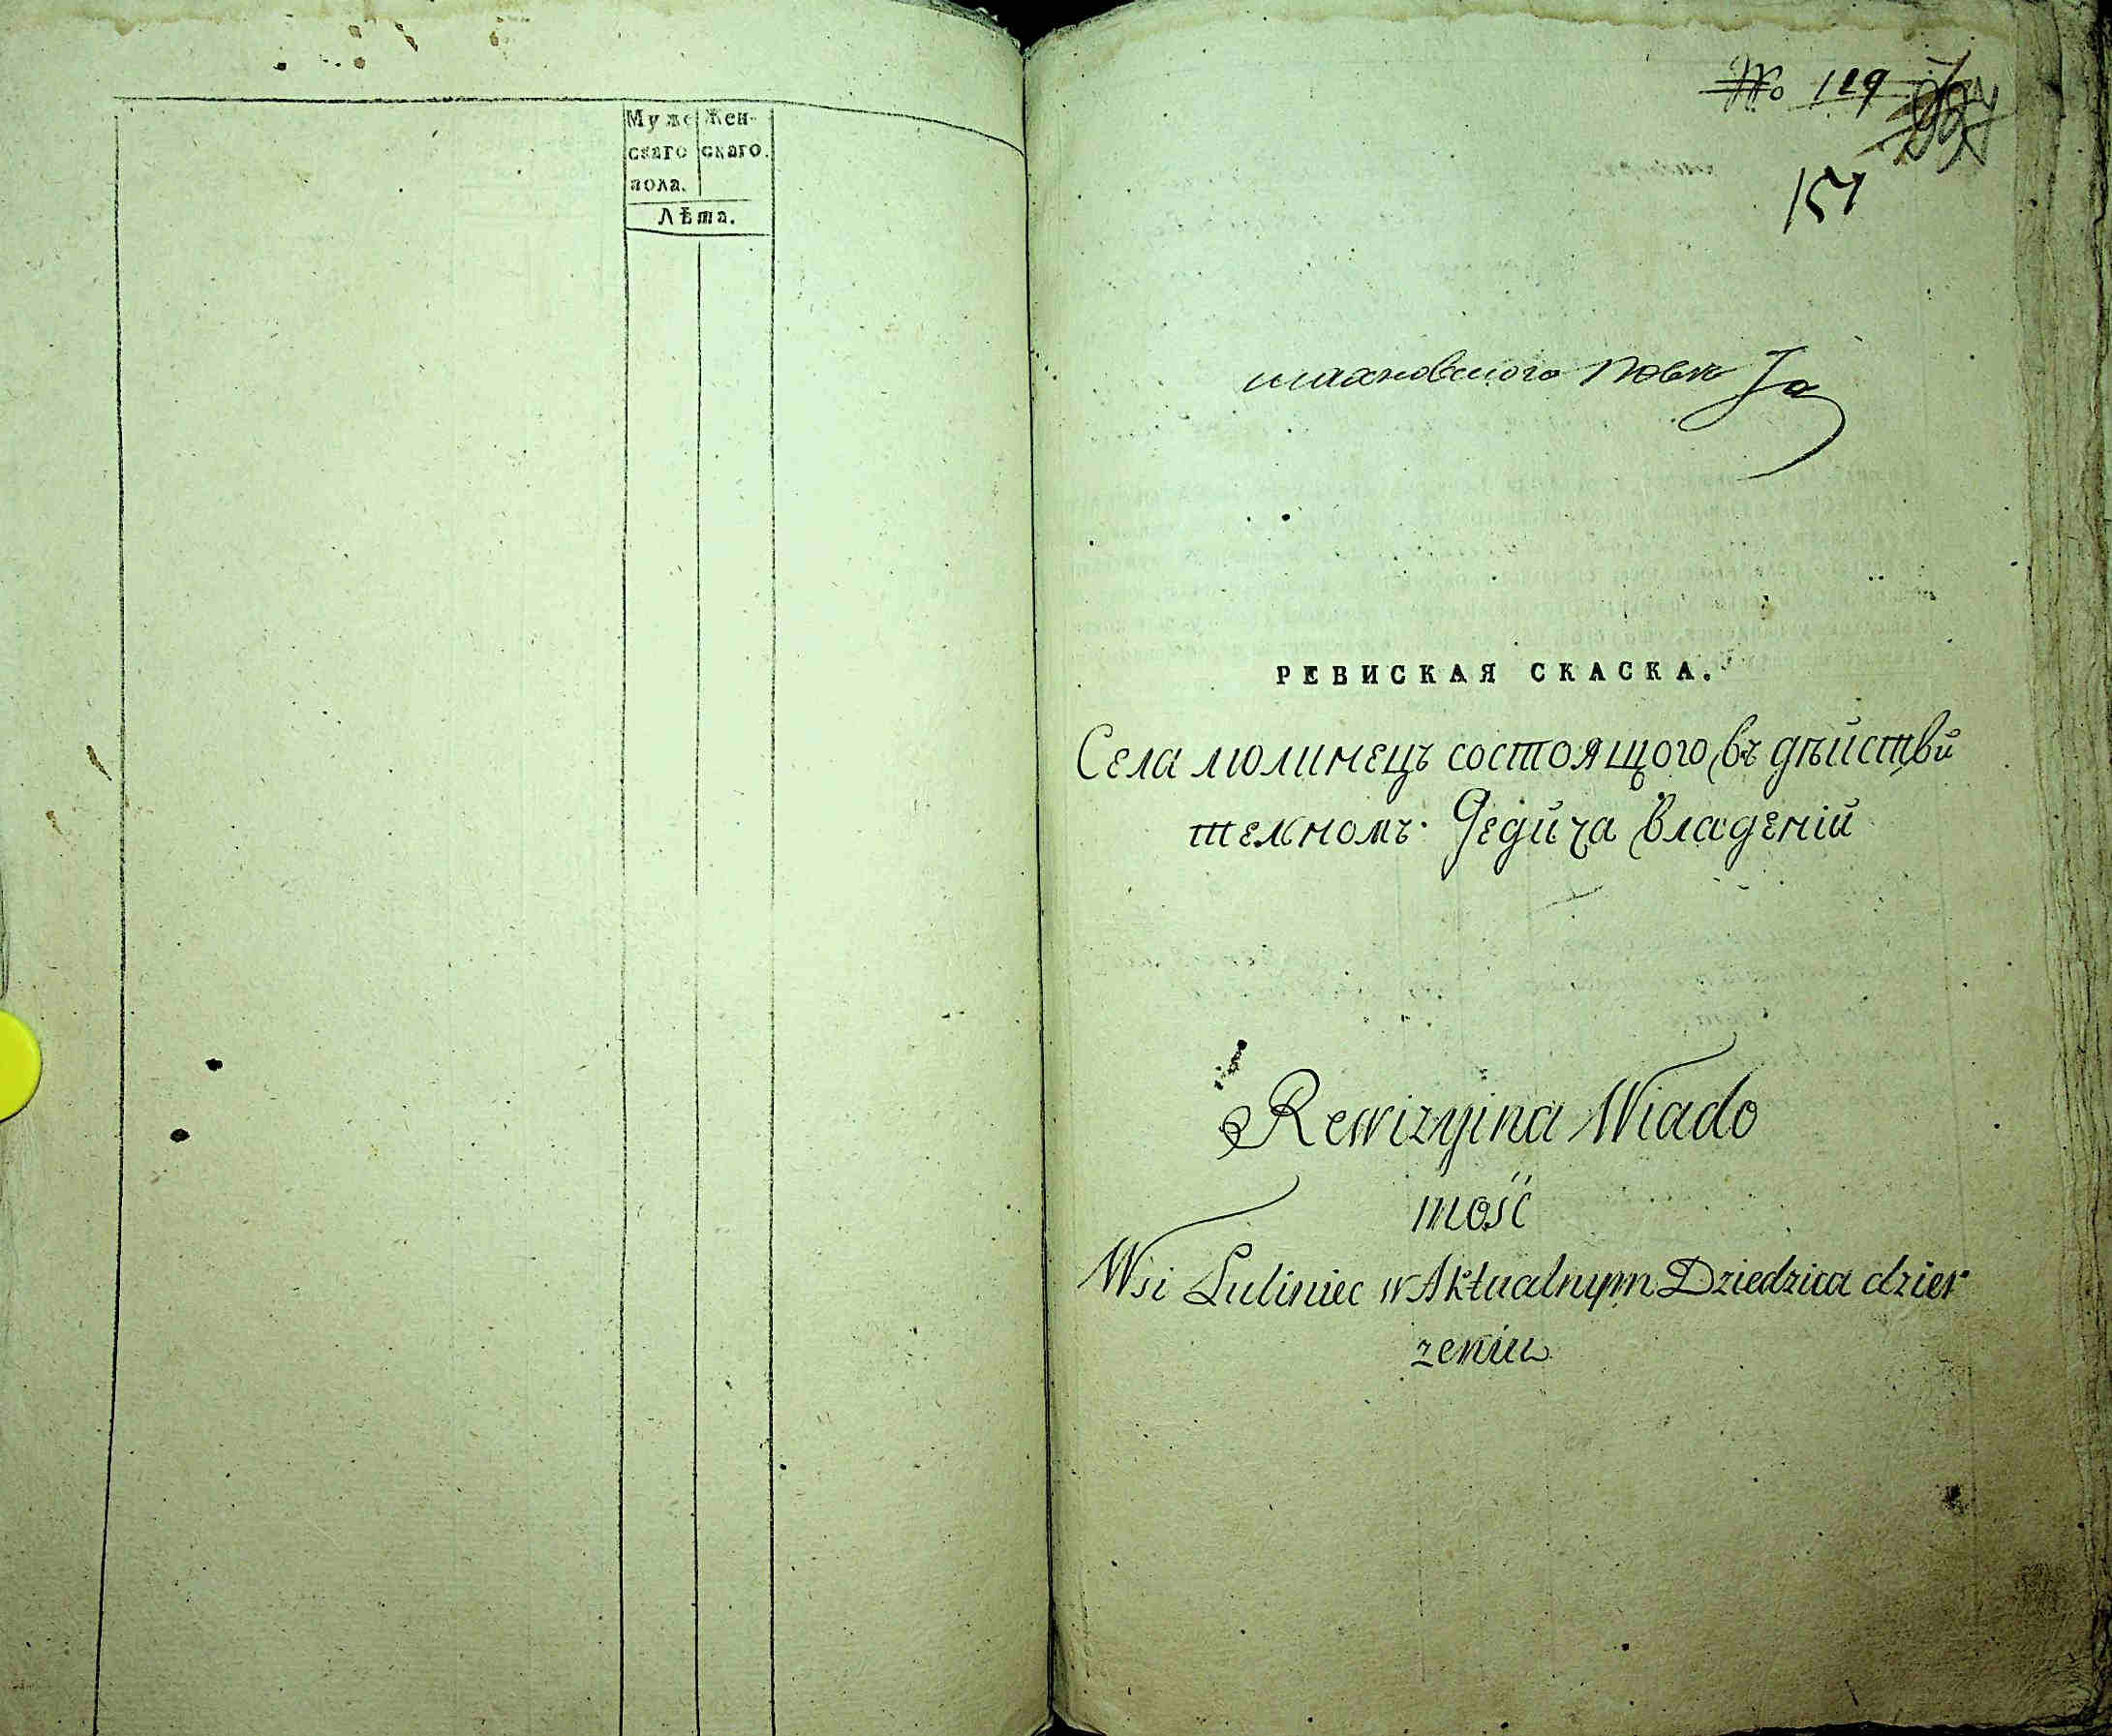 Мужс Жен-
скаго скаго.
пола.
Лѣта.
№ 129
151
махновского повѣ
та
РЕВИСКАЯ СКАСКА.
Села люлинецъ состоящого въ дѣйстви
тельномъ Дедича владеній
Rewizyina Wiado
mość
Wsi Luliniec w Aktualnym Dziedzica dzier
zeniu